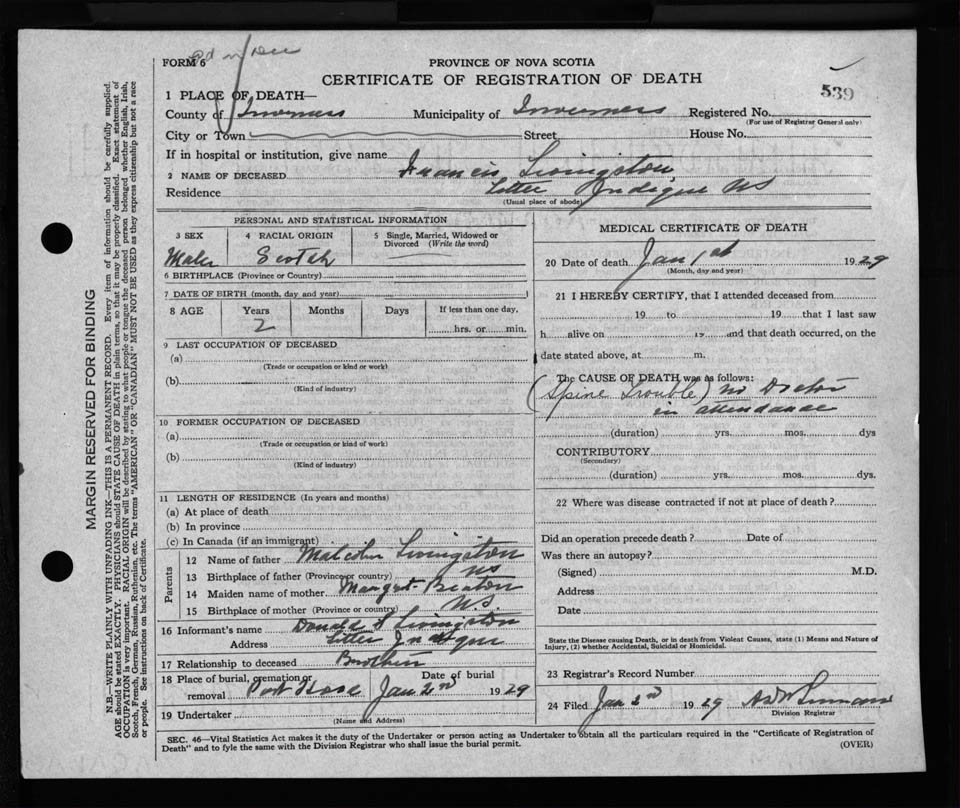 FORM 6
PROVINCE OF NOVA SCOTIA
CERTIFICATE OF REGISTRATION OF DEATH
539
1 PLACE OF DEATH—
County of Inverness Municipality of Inverness Registered No.
(For use of Registrar General only)
City or Town Street House No.
If in hospital or institution, give name
2 NAME OF DECEASED Francis Livingston
Residence Little Indique NS
(Usual place of abode)
PERSONAL AND STATISTICAL INFORMATION
3 SEX 4 RACIAL ORIGIN 5 Single, Married, Widowed or Divorced (Write the word)
Male Scotch
6 BIRTHPLACE (Province or Country)
7 DATE OF BIRTH (month, day and year)
8 AGE Years Months Days If less than one day,
2 hrs. or min.
9 LAST OCCUPATION OF DECEASED
(a)
(Trade or occupation or kind or work)
(b)
(Kind of industry)
10 FORMER OCCUPATION OF DECEASED
(a)
(Trade or occupation or kind of work)
(b)
(Kind of industry)
11 LENGTH OF RESIDENCE (In years and months)
(a) At place of death
(b) In province
(c) In Canada (if an immigrant)
Parents
12 Name of father Malcolm Livingston
13 Birthplace of father (Province or country) NS
14 Maiden name of mother Margret Beaton
15 Birthplace of mother (Province or country) N.S.
16 Informant's name Donald Livingston
Address Little
17 Relationship to deceased Brother
18 Place of burial, cremation or removal Port Hood Date of burial Jan 2nd 1929
19 Undertaker
(Name and Address)
MEDICAL CERTIFICATE OF DEATH
20 Date of death Jan 1st 1929
(Month, day and year)
21 I HEREBY CERTIFY, that I attended deceased from
19 to 19 that I last saw
h alive on 19 and that death occurred, on the
date stated above, at m.
The CAUSE OF DEATH was as follows:
(Spine Trouble) no Doctor
in attendance
(duration) yrs. mos. dys
CONTRIBUTORY
(Secondary)
(duration) yrs. mos. dys.
22 Where was disease contracted if not at place of death?
Did an operation precede death? Date of
Was there an autopsy?
(Signed) M.D.
Address
Date
State the Disease causing Death, or in death from Violent Causes, state (1) Means and Nature of
Injury, (2) whether Accidental, Suicidal or Homicidal.
23 Registrar's Record Number
24 Filed Jan 2nd 1929
Division Registrar
SEC. 46—Vital Statistics Act makes it the duty of the Undertaker or person acting as Undertaker to obtain all the particulars required in the "Certificate of Registration of
Death" and to fyle the same with the Division Registrar who shall issue the burial permit. (OVER)
MARGIN RESERVED FOR BINDING
N.B.—WRITE PLAINLY WITH UNFADING INK—THIS IS A PERMANENT RECORD. Every item of information should be carefully supplied.
AGE should be stated EXACTLY. PHYSICIANS should STATE CAUSE OF DEATH in plain terms, so that it may be properly classified. Exact statement of
OCCUPATION is very important. RACIAL ORIGIN will be described by stating to what people or tongue the deceased person belonged, whether English, Irish,
Scotch, French, German, Russian, Ruthenian, etc. The terms "AMERICAN" OR "CANADIAN" MUST NOT BE USED as they express citizenship but not a race
or people. See instructions on back of Certificate.